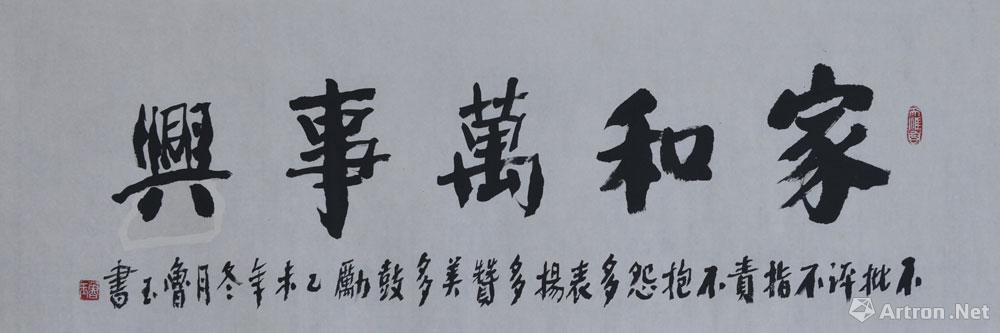 家和萬事興
不批评不指責不抱怨多表揚多贊美多鼓勵乙未年冬月魯玉書
Artron.Net